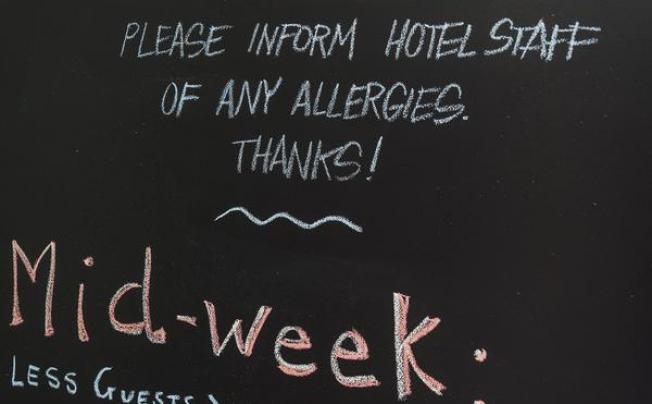 PLEASE INFORM HOTEL STAFF
OF ANY ALLERGIES.
THANKS!
Mid-week:
LESS GUESTS)